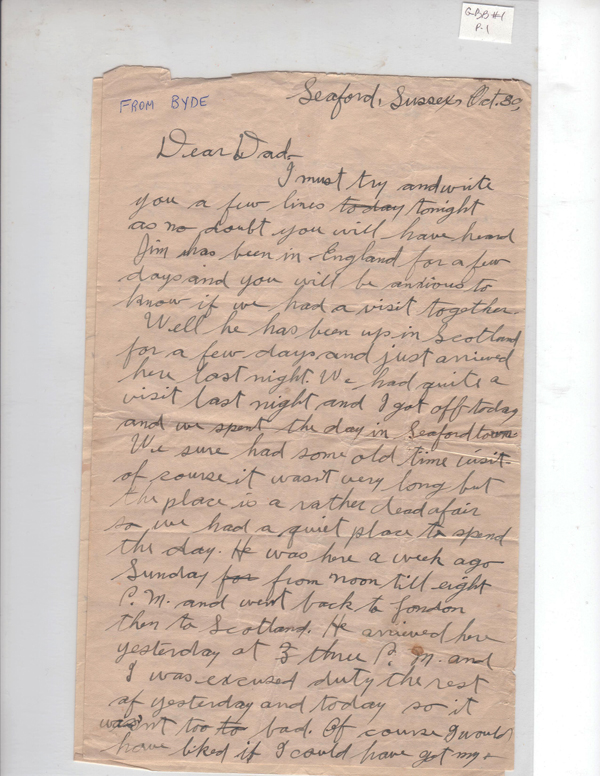 GBB#1
P.1
FROM BYDE
Seaford, Sussex, Oct. 30,
Dear Dad-
I must try and write
you a few lines today tonight
as no doubt you will have heard
Jim has been in England for a few
days and you will be anxious to
know if we had a visit together.
Well he has been up in Scotland
for a few days and just arrived
here last night. We had quite a
visit last night and I got off today
and we spent the day in Seaford town
We sure had some old time visit
of course it wasnt very long but
the place is a rather dead afair
so we had a quiet place to spend
the day. He was here a week ago
Sunday for from noon till eight
P.M. and went back to London
then to Scotland. He arrived here
yesterday at 3 three P.M. and
I was excused duty the rest
of yesterday and today so it
wasn't too to bad. Of course I would
have liked if I could have got my